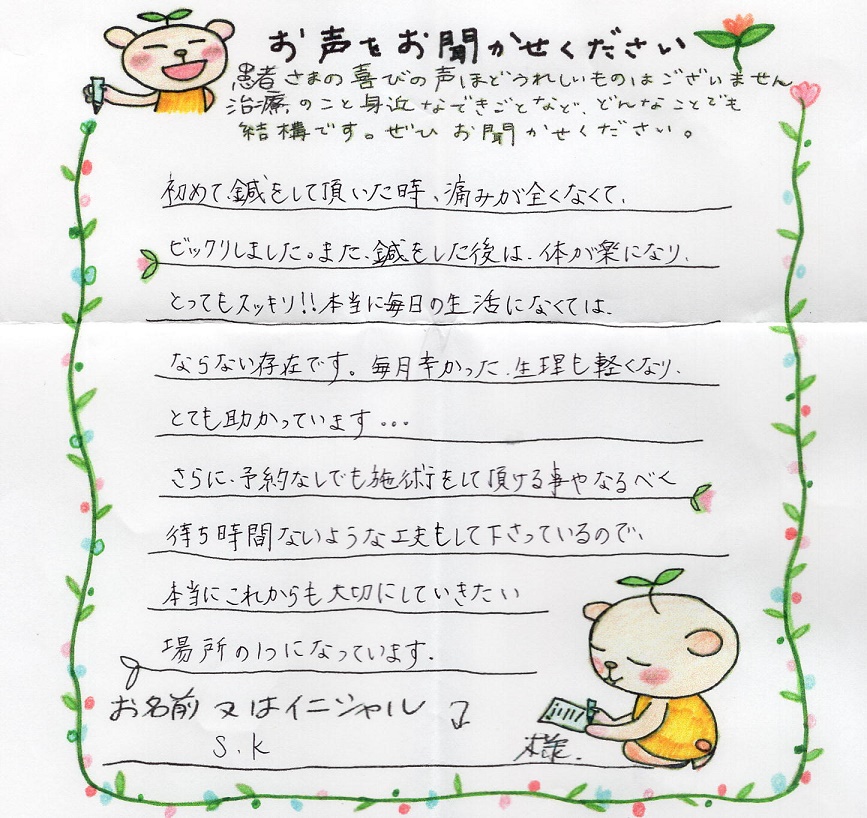 お声をお聞かせください
患者さまの喜びの声ほどうれしいものはございません
治療のこと身近なできごとなど、どんなことでも
結構です。ぜひお聞かせください。
初めて、鍼をして頂いた時、痛みが全くなくて、
ビックリしました。また、鍼をした後は、体が楽になり、
とってもスッキリ!!本当に毎日の生活になくては、
ならない存在です。毎月辛かった、生理も軽くなり、
とても助かっています・・・
さらに、予約なしでも施術をして頂ける事やなるべく
待ち時間ないような工夫もして下さっているので、
本当にこれからも大切にしていきたい
場所の1つになっています。
お名前又はイニシャル
S.K 様.